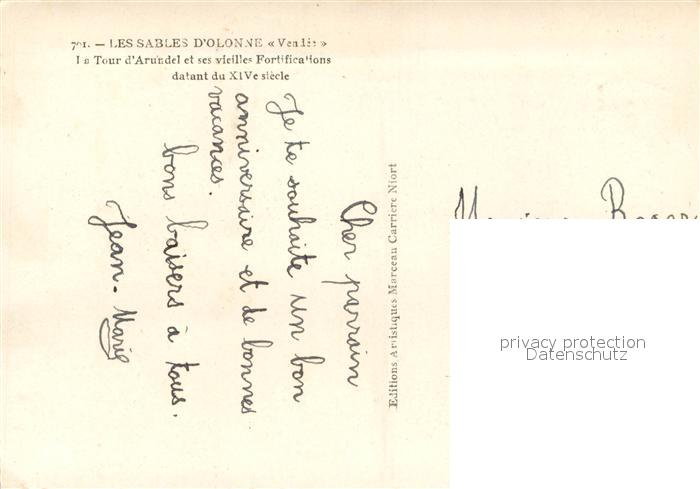 701. — LES SABLES D'OLONNE « Vendée »
La Tour d'Arundel et ses vieilles Fortifications
datant du XIVe siècle
Cher parrain
Je te souhaite un bon
anniversaire et de bonnes
vacances.
bons baisers à tous.
Jean-Marie
Editions Artistiques Marceau Carrière Niort
privacy protection
Datenschutz